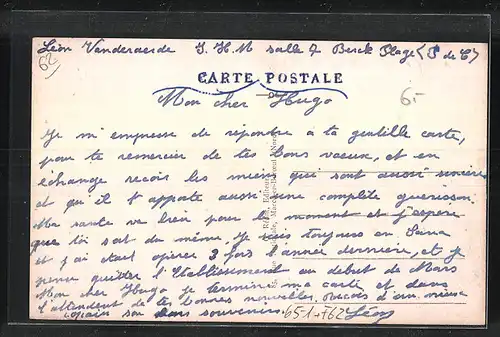 Léon Vanderaerde S. H. M salle 7 Berck Plage (P de C)
62
CARTE POSTALE
Mon cher Hugo
6.-
Je m'empresse de répondre à ta gentille carte,
pour te remercier de tes bons voeux, et en
échange recois les miens qui sont aussi sincères
et qu'il t'apporte aussi une complète guerison.
Ma santé va bien pour le moment et j'espère
que toi soit du même. Je suis toujours en Sana
et j'ai était opérer 3 fois l'année dernière, et je
pense quitter l'Etablissement au debut de Mars
Mon cher Hugo je termine ma carte et dans
l'attendent de tes bonnes nouvelles. Recois d'un
copain son bons souvenirs. Léon